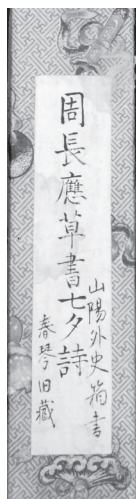 周長應草書七夕詩
山陽外史箱書
春琴旧藏